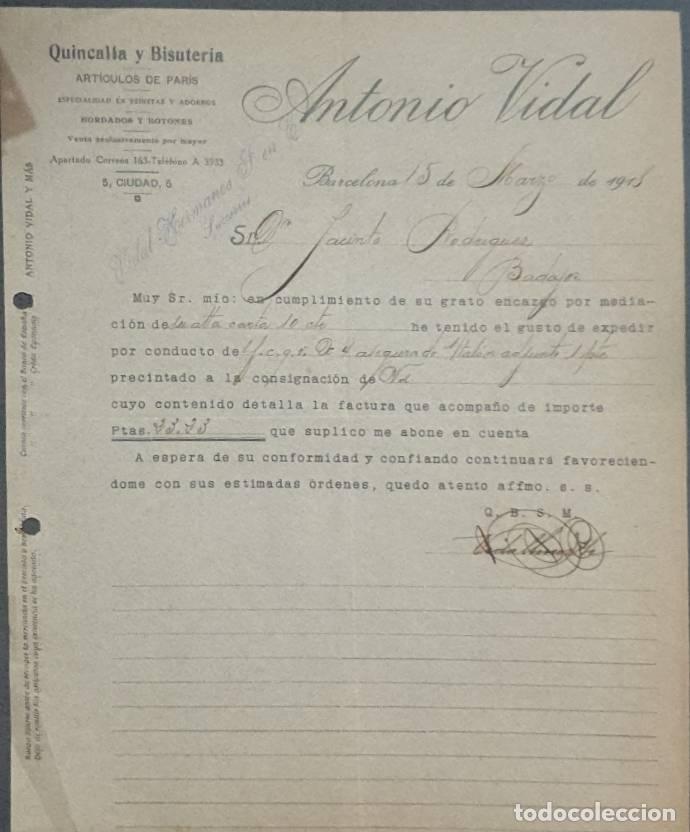 Quincalla y Bisutería
ARTÍCULOS DE PARÍS
ESPECIALIDAD EN PEINETAS Y ADORNOS
BORDADOS Y BOTONES
Venta exclusivamente por mayor
Apartado Correos 163-Teléfono A 3933
5, CIUDAD, 5
Antonio Vidal
Vidal Hermanos S. en C.
Barcelona 15 de Marzo de 1918
Sr. Dn Jacinto Rodriguez
Badajoz
Muy Sr. mío: en cumplimiento de su grato encargo por media-
ción de su atta carta 10 cte he tenido el gusto de expedir
por conducto de talón adjunto 1
precintado a la consignación de Vd
cuyo contenido detalla la factura que acompaño de importe
Ptas. que suplico me abone en cuenta
A espera de su conformidad y confiando continuará favorecien-
dome con sus estimadas órdenes, quedo atento affmo. s. s.
Q. B. S. M.
ANTONIO VIDAL Y MÁS
Cuenta corriente con el Banco de España
" " " Crédit Lyonnais
todocoleccion